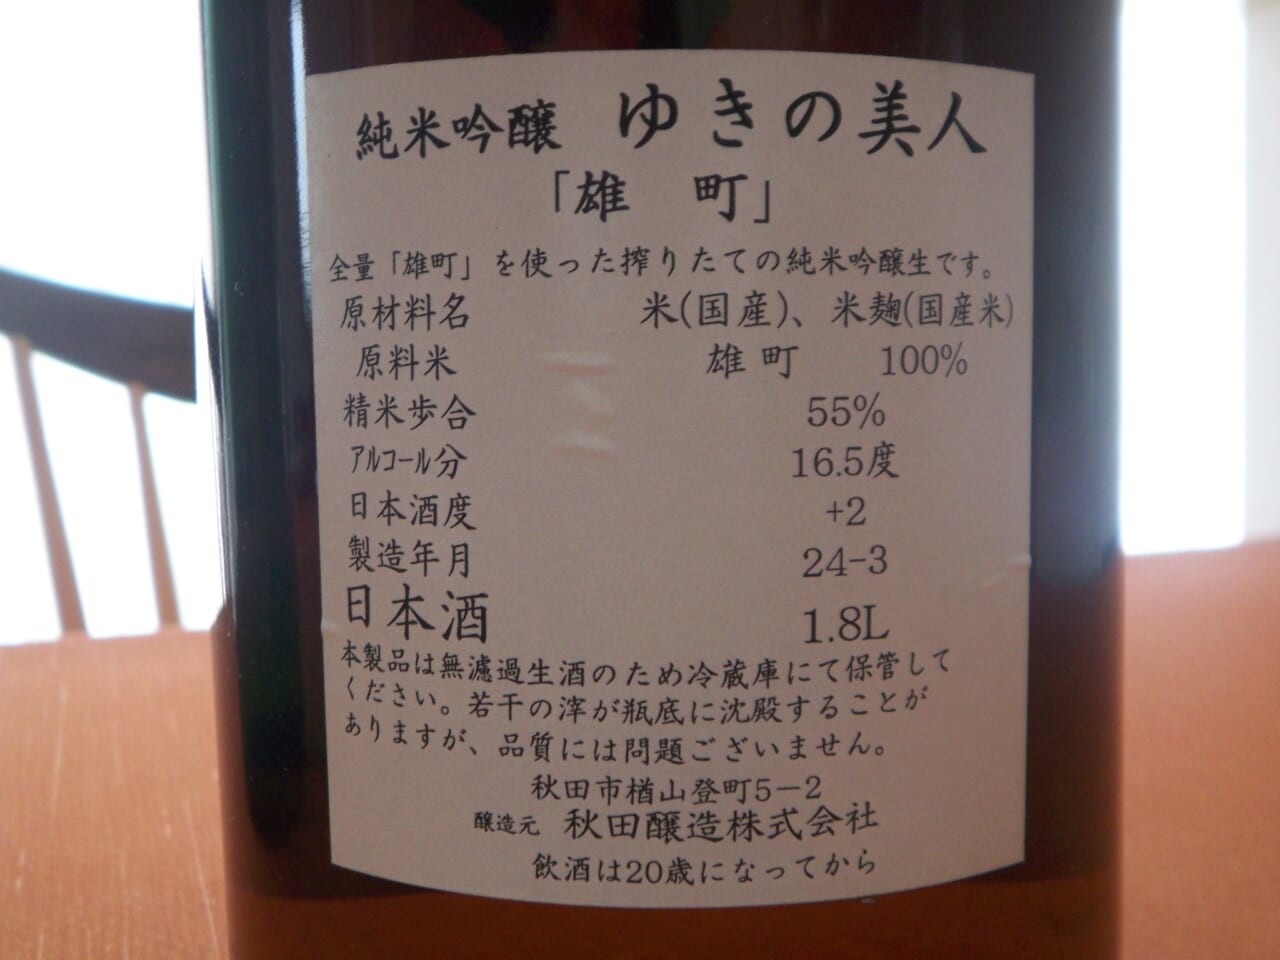 純米吟醸 ゆきの美人
「雄 町」
全量「雄町」を使った搾りたての純米吟醸生です。
原材料名 米(国産)、米麹(国産米)
原料米 雄町 100%
精米歩合 55%
アルコール分 16.5度
日本酒度 +2
製造年月 24-3
日本酒 1.8L
本製品は無濾過生酒のため冷蔵庫にて保管して
ください。若干の滓が瓶底に沈殿することが
ありますが、品質には問題ございません。
秋田市楢山登町5-2
醸造元 秋田醸造株式会社
飲酒は20歳になってから